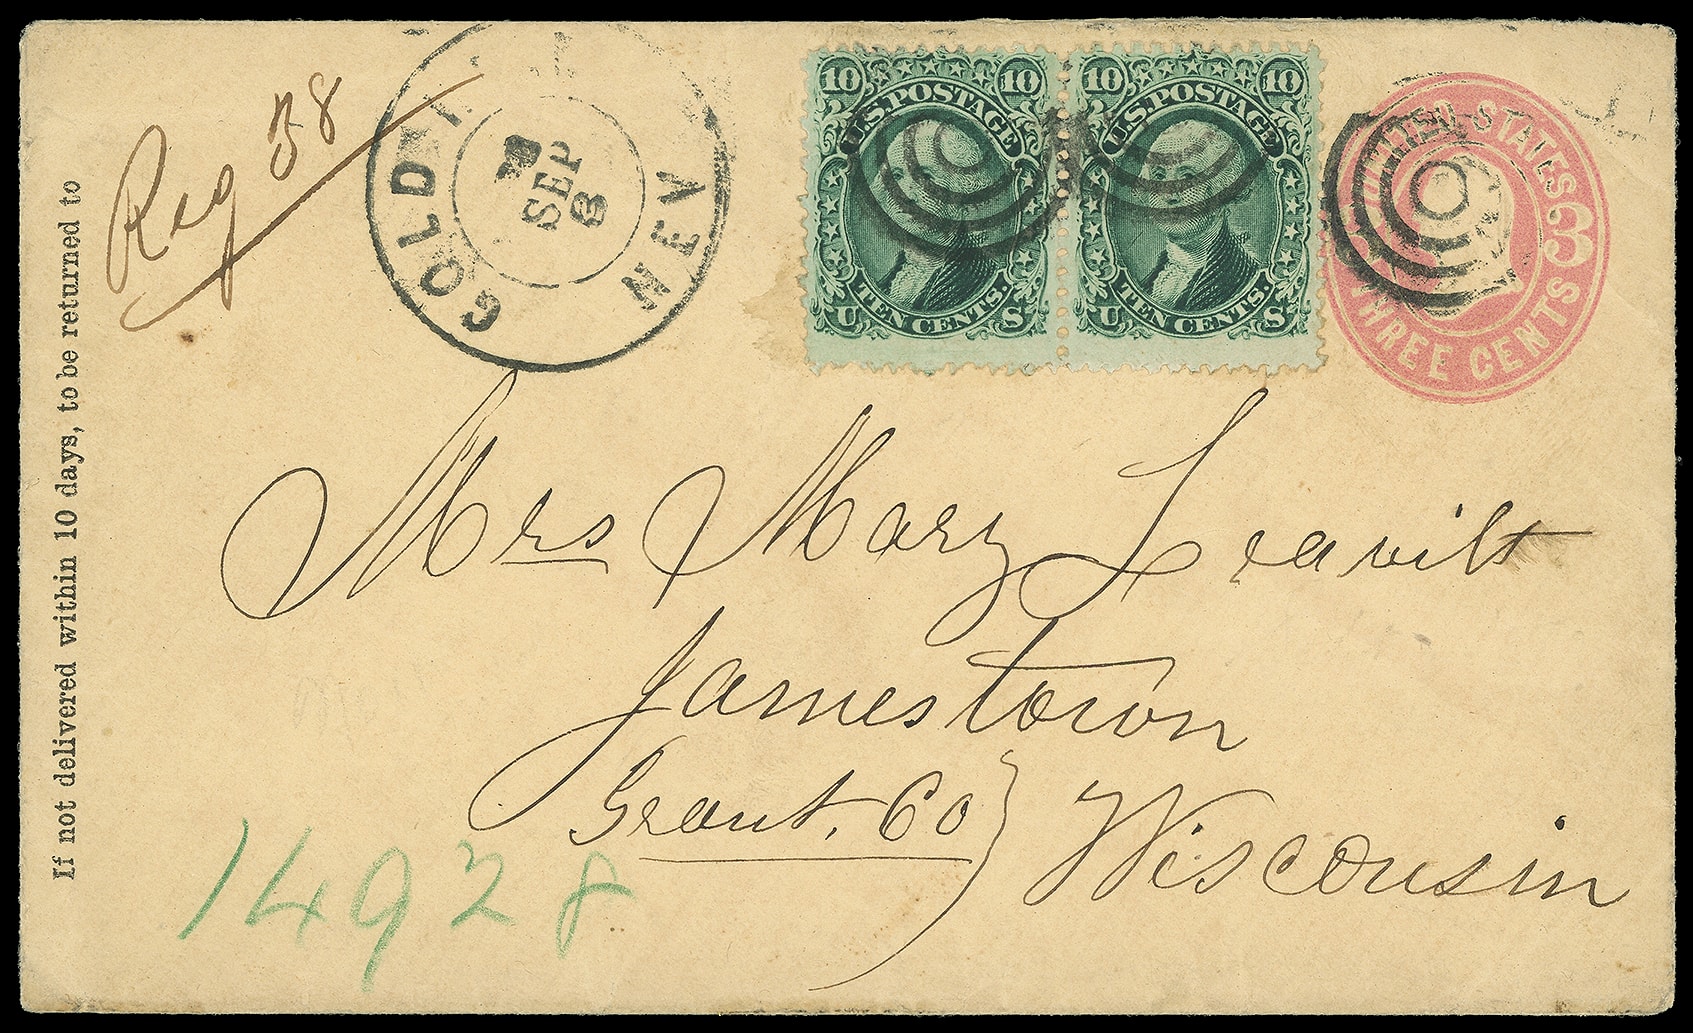 If not delivered within 10 days, to be returned to
Reg 38
GOLD
NEV
SEP
8
10 10
U.S. POSTAGE
TEN CENTS.
U S
10 10
U.S. POSTAGE
TEN CENTS.
U S
UNITED STATES
3 3
THREE CENTS
Mrs Mary Leavitt
Jamestown
Grant. Co } Wisconsin
14928